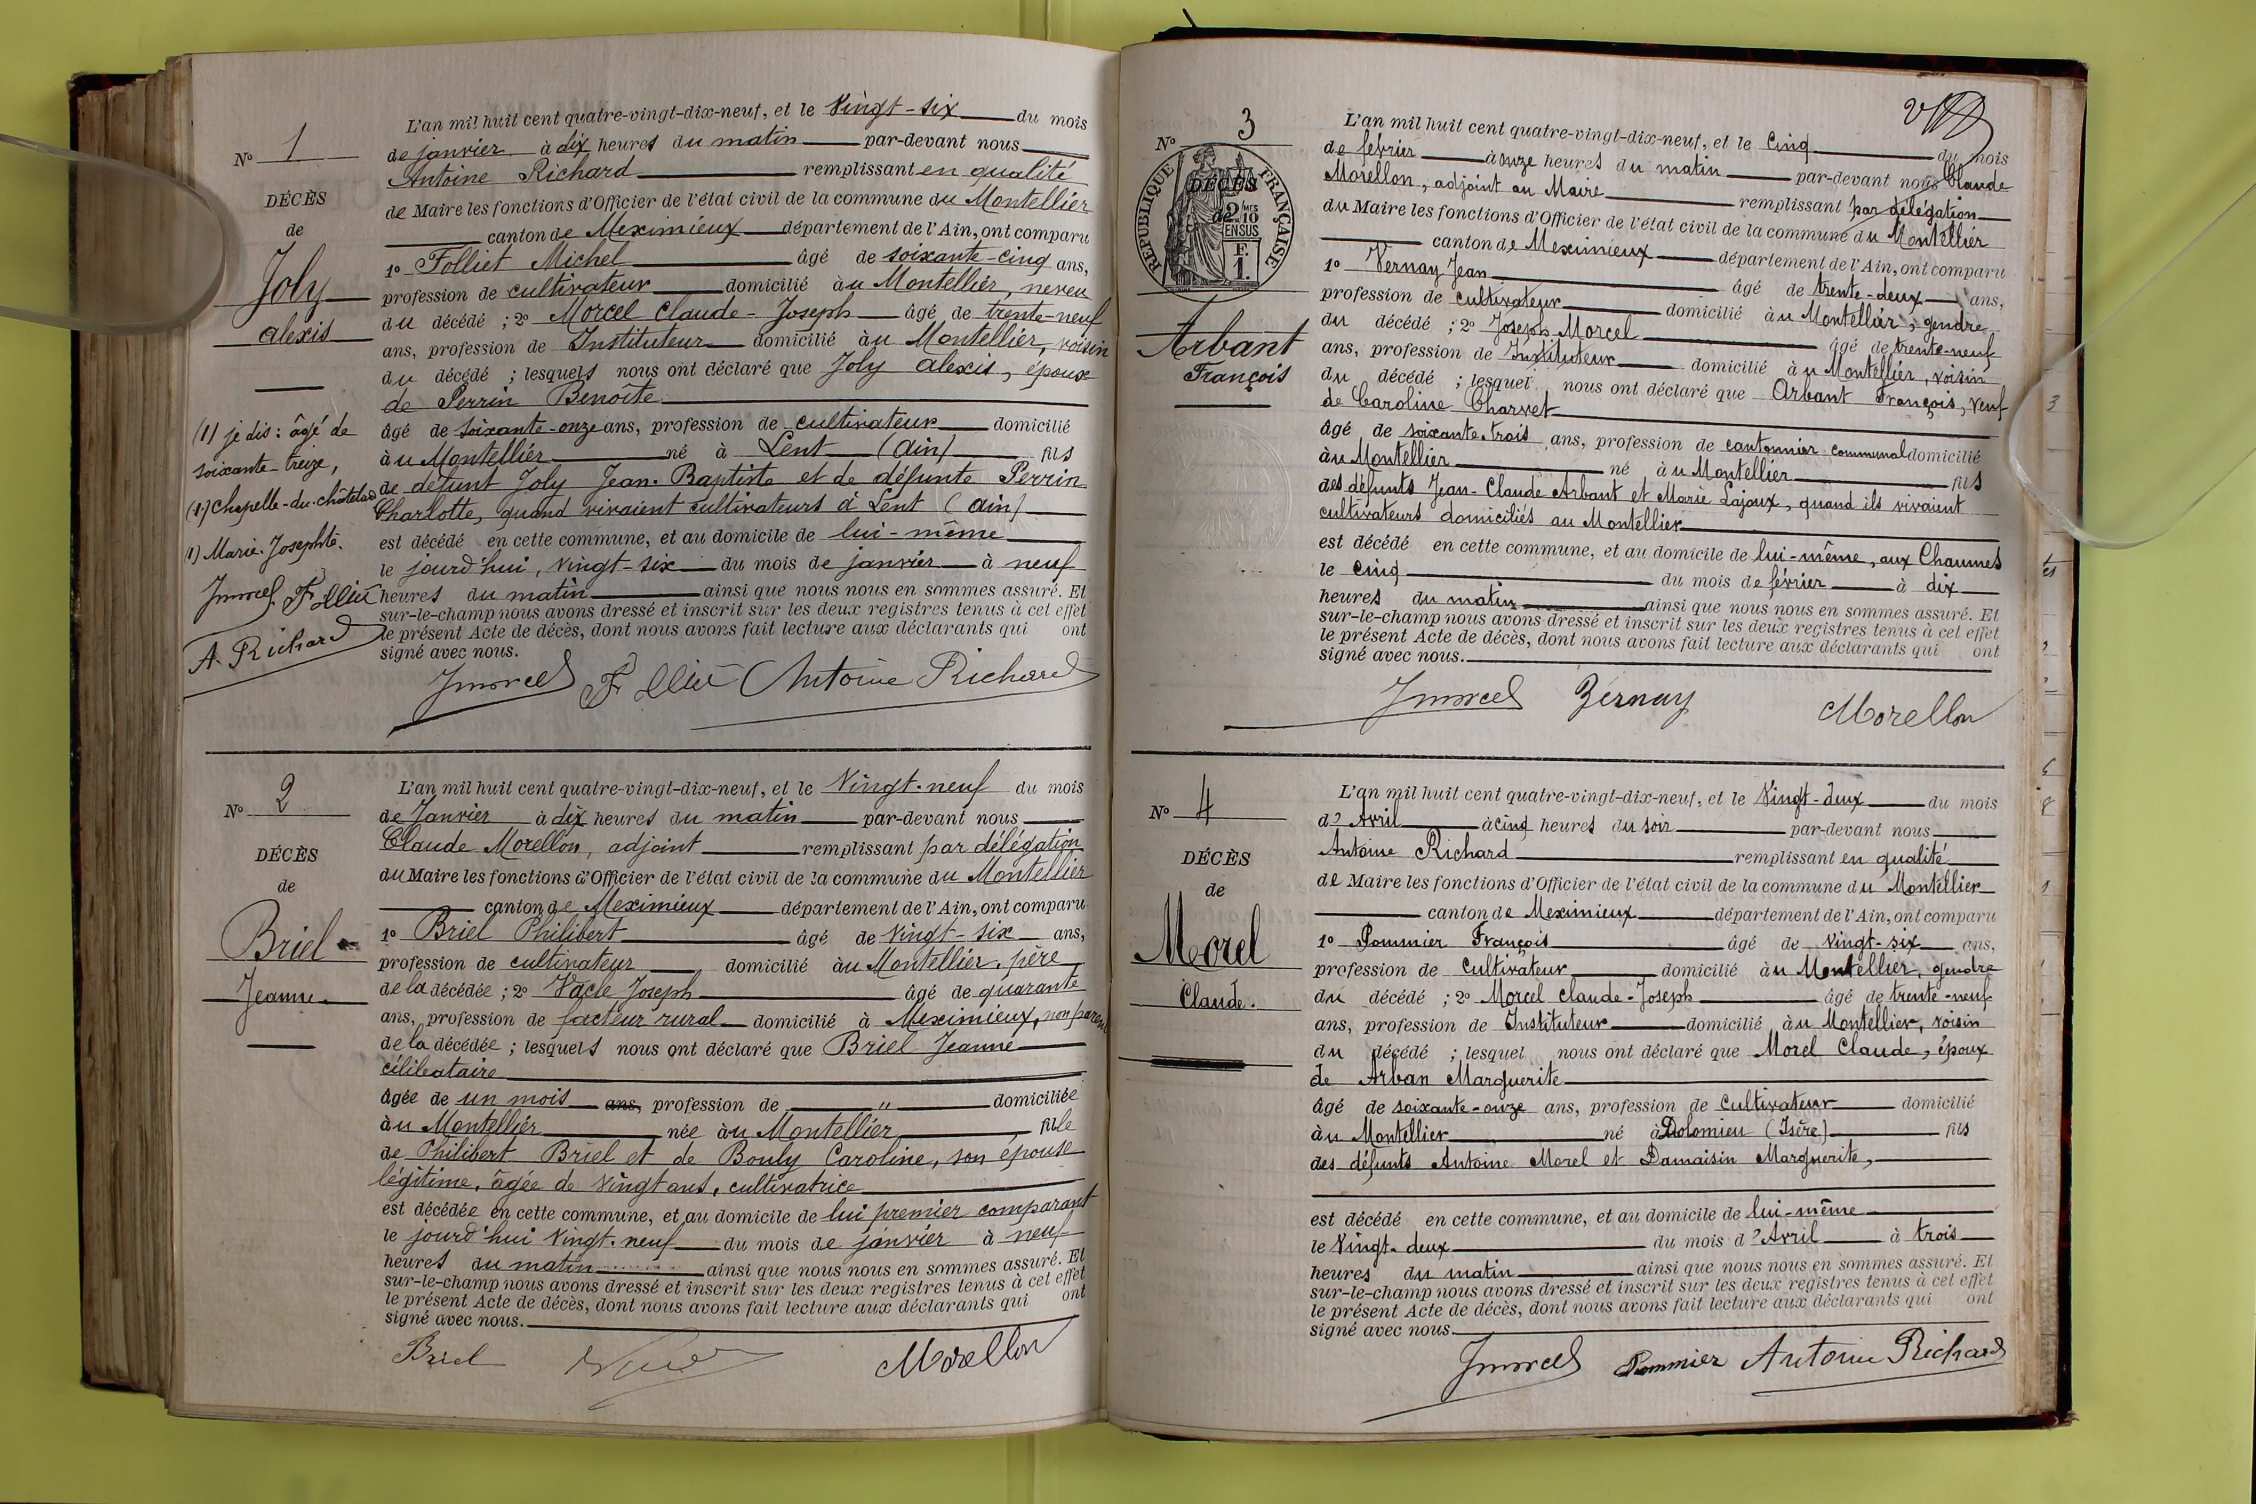 N° 1
DÉCÈS
de
Joly
alexis
(1) je dis : âgé de
soixante-treize,
(1) Chapelle-du-châtelard
(1) Marie-Josephte.
Jmorcel Folliet
A. Richard
L'an mil huit cent quatre-vingt-dix-neuf, et le Vingt-six du mois
de janvier à dix heures du matin par-devant nous
Antoine Richard remplissant en qualité
de Maire les fonctions d'Officier de l'état civil de la commune du Montellier
canton de Meximieux département de l'Ain, ont comparu
1° Folliet Michel âgé de soixante-cinq ans,
profession de cultivateur domicilié à u Montellier, neveu
du décédé ; 2° Morcel Claude-Joseph âgé de trente-neuf
ans, profession de Instituteur domicilié à u Montellier, voisin
du décédé ; lesquels nous ont déclaré que Joly alexis, époux
de Perrin Benoîte
âgé de soixante-onze ans, profession de cultivateur domicilié
à u Montellier né à Lent (ain) fils
de défunt Joly Jean-Baptiste et de défunte Perrin
Charlotte, quand vivaient cultivateurs à Lent (ain)
est décédé en cette commune, et au domicile de lui-même
le jourd'hui, vingt-six du mois de janvier à neuf
heures du matin ainsi que nous nous en sommes assuré. Et
sur-le-champ nous avons dressé et inscrit sur les deux registres tenus à cet effet
le présent Acte de décès, dont nous avons fait lecture aux déclarants qui ont
signé avec nous.
Jmorcel Folliet Antoine Richard
N° 2
DÉCÈS
de
Briel
Jeanne
L'an mil huit cent quatre-vingt-dix-neuf, et le Vingt-neuf du mois
de Janvier à dix heures du matin par-devant nous
Claude Morellon, adjoint remplissant par délégation
du Maire les fonctions d'Officier de l'état civil de la commune du Montellier
canton de Meximieux département de l'Ain, ont comparu
1° Briel Philibert âgé de vingt-six ans,
profession de cultivateur domicilié à u Montellier, père
de la décédée ; 2° Vacle Joseph âgé de quarante
ans, profession de facteur rural domicilié à Meximieux, non parent
de la décédée ; lesquels nous ont déclaré que Briel Jeanne
célibataire
âgée de un mois ans, profession de " domiciliée
à u Montellier née à u Montellier fille
de Philibert Briel et de Bouly Caroline, son épouse
légitime, âgée de vingt ans, cultivatrice
est décédée en cette commune, et au domicile de lui premier comparant
le jourd'hui vingt-neuf du mois de janvier à neuf
heures du matin ainsi que nous nous en sommes assuré. Et
sur-le-champ nous avons dressé et inscrit sur les deux registres tenus à cet effet
le présent Acte de décès, dont nous avons fait lecture aux déclarants qui ont
signé avec nous.
Briel Morellon
N° 3
RÉPUBLIQUE FRANÇAISE
DÉCÈS
de
2/10 EN SUS
F.
1.
Arbant
François
L'an mil huit cent quatre-vingt-dix-neuf, et le Cinq du mois
de février à onze heures du matin par-devant nous Claude
Morellon, adjoint au Maire remplissant par délégation
du Maire les fonctions d'Officier de l'état civil de la commune du Montellier
canton de Meximieux département de l'Ain, ont comparu
1° Vernay Jean âgé de trente-deux ans,
profession de cultivateur domicilié à u Montellier, gendre
du décédé ; 2° Joseph Morcel âgé de trente-neuf
ans, profession de Instituteur domicilié à u Montellier, voisin
du décédé ; lesquel nous ont déclaré que Arbant François, veuf
de Caroline Charvet
âgé de soixante-trois ans, profession de cantonnier communal domicilié
à u Montellier né à u Montellier fils
des défunts Jean-Claude Arbant et Marie Lajoux, quand ils vivaient
cultivateurs domiciliés au Montellier
est décédé en cette commune, et au domicile de lui-même, aux Chaumes
le cinq du mois de février à dix
heures du matin ainsi que nous nous en sommes assuré. Et
sur-le-champ nous avons dressé et inscrit sur les deux registres tenus à cet effet
le présent Acte de décès, dont nous avons fait lecture aux déclarants qui ont
signé avec nous.
Jmorcel Vernay Morellon
N° 4
DÉCÈS
de
Morel
Claude.
L'an mil huit cent quatre-vingt-dix-neuf, et le Vingt-deux du mois
d'Avril à cinq heures du soir par-devant nous
Antoine Richard remplissant en qualité
de Maire les fonctions d'Officier de l'état civil de la commune du Montellier
canton de Meximieux département de l'Ain, ont comparu
1° Pommier François âgé de vingt-six ans,
profession de cultivateur domicilié à u Montellier, gendre
du décédé ; 2° Morcel Claude-Joseph âgé de trente-neuf
ans, profession de Instituteur domicilié à u Montellier, voisin
du décédé ; lesquel nous ont déclaré que Morel Claude, époux
de Arban Marguerite
âgé de soixante-onze ans, profession de cultivateur domicilié
à u Montellier né à Dolomieu (Isère) fils
des défunts Antoine Morel et Damaisin Marguerite,
est décédé en cette commune, et au domicile de lui-même
le Vingt-deux du mois d'Avril à trois
heures du matin ainsi que nous nous en sommes assuré. Et
sur-le-champ nous avons dressé et inscrit sur les deux registres tenus à cet effet
le présent Acte de décès, dont nous avons fait lecture aux déclarants qui ont
signé avec nous.
Jmorcel Pommier Antoine Richard